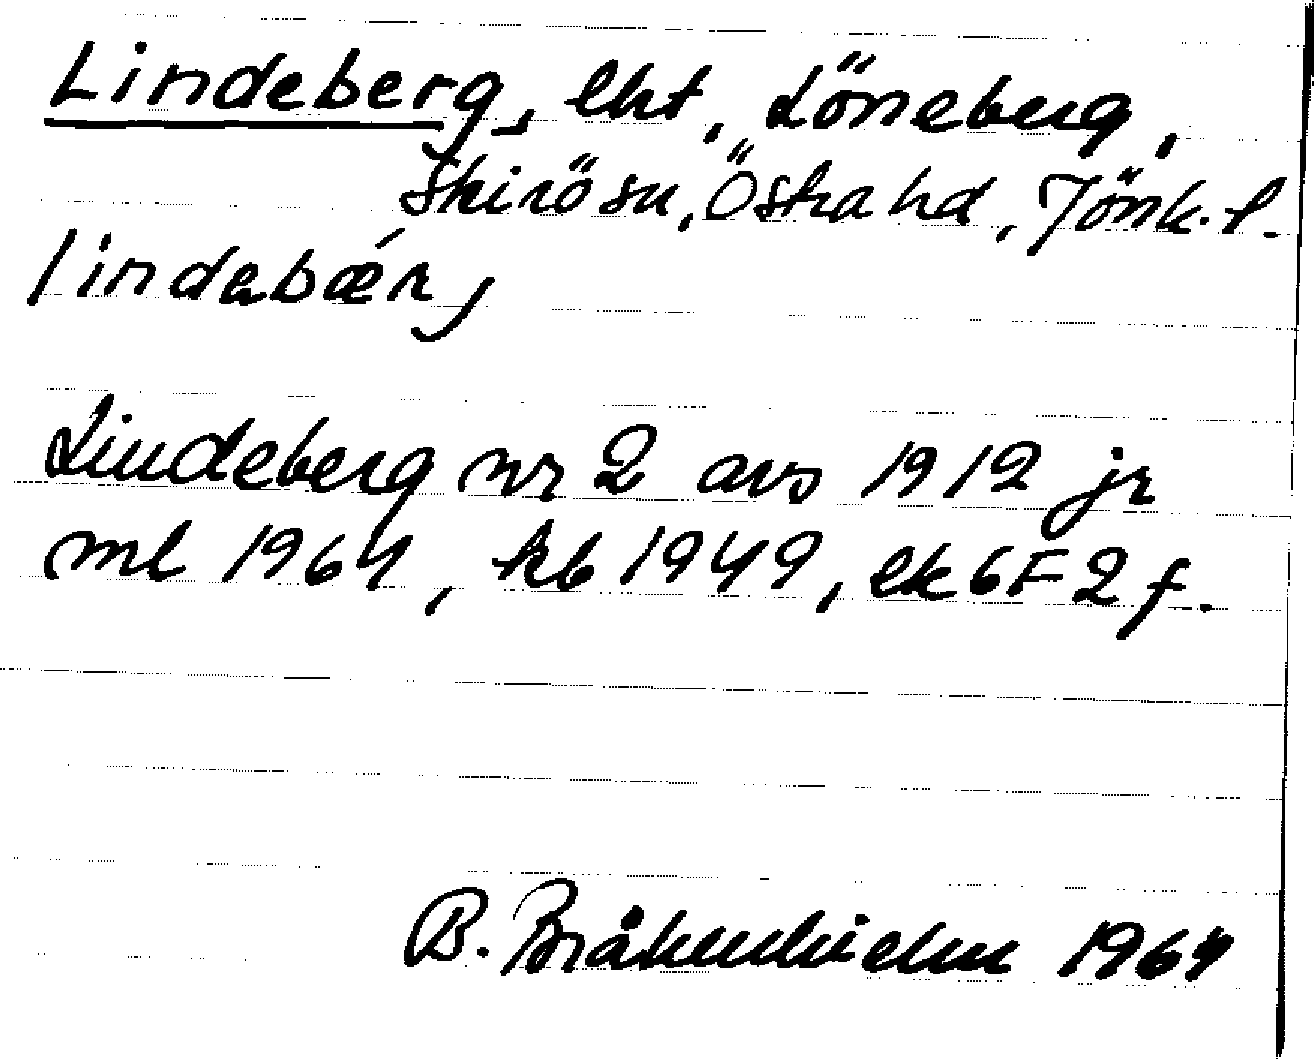 Lindeberg, lht, Löneberg,
Skirö sn, Östra hd, Jönk. l.
lindabǽrj
Lindeberg nr 2 avs 1912 jr
ml 1964, kb 1949, ek 6F2f.
B. 1964